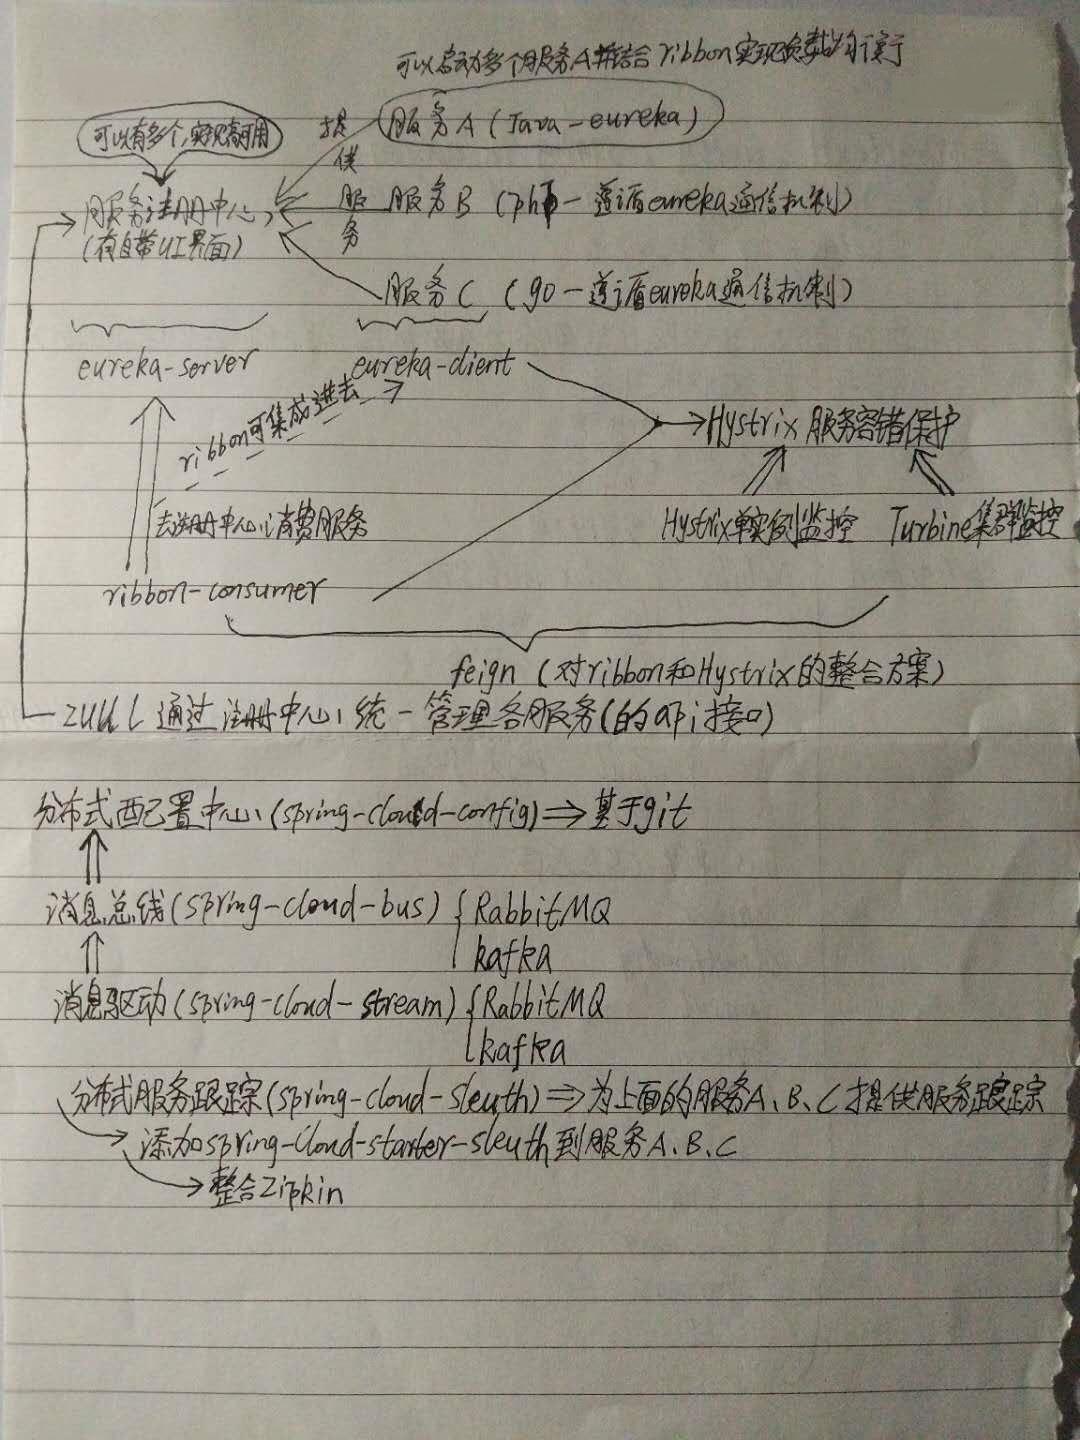 可以启动多个服务A并结合ribbon实现负载均衡
可以有多个,实现高可用
提供服务
服务A(Java-eureka)
服务注册中心
(有自带UI界面)
服务B(php-遵循eureka通信机制)
服务C(go-遵循eureka通信机制)
eureka-server
eureka-client
ribbon可集成进去
Hystrix服务容错保护
去注册中心消费服务
Hystrix单实例监控
Turbine集群监控
ribbon-consumer
feign(对ribbon和Hystrix的整合方案)
zuul通过注册中心统一管理各服务(的api接口)
分布式配置中心(spring-cloud-config)⇒基于git
消息总线(spring-cloud-bus){RabbitMQ
kafka
消息驱动(spring-cloud-stream){RabbitMQ
kafka
分布式服务跟踪(spring-cloud-sleuth)⇒为上面的服务A、B、C提供服务跟踪
添加spring-cloud-starter-sleuth到服务A、B、C
整合Zipkin